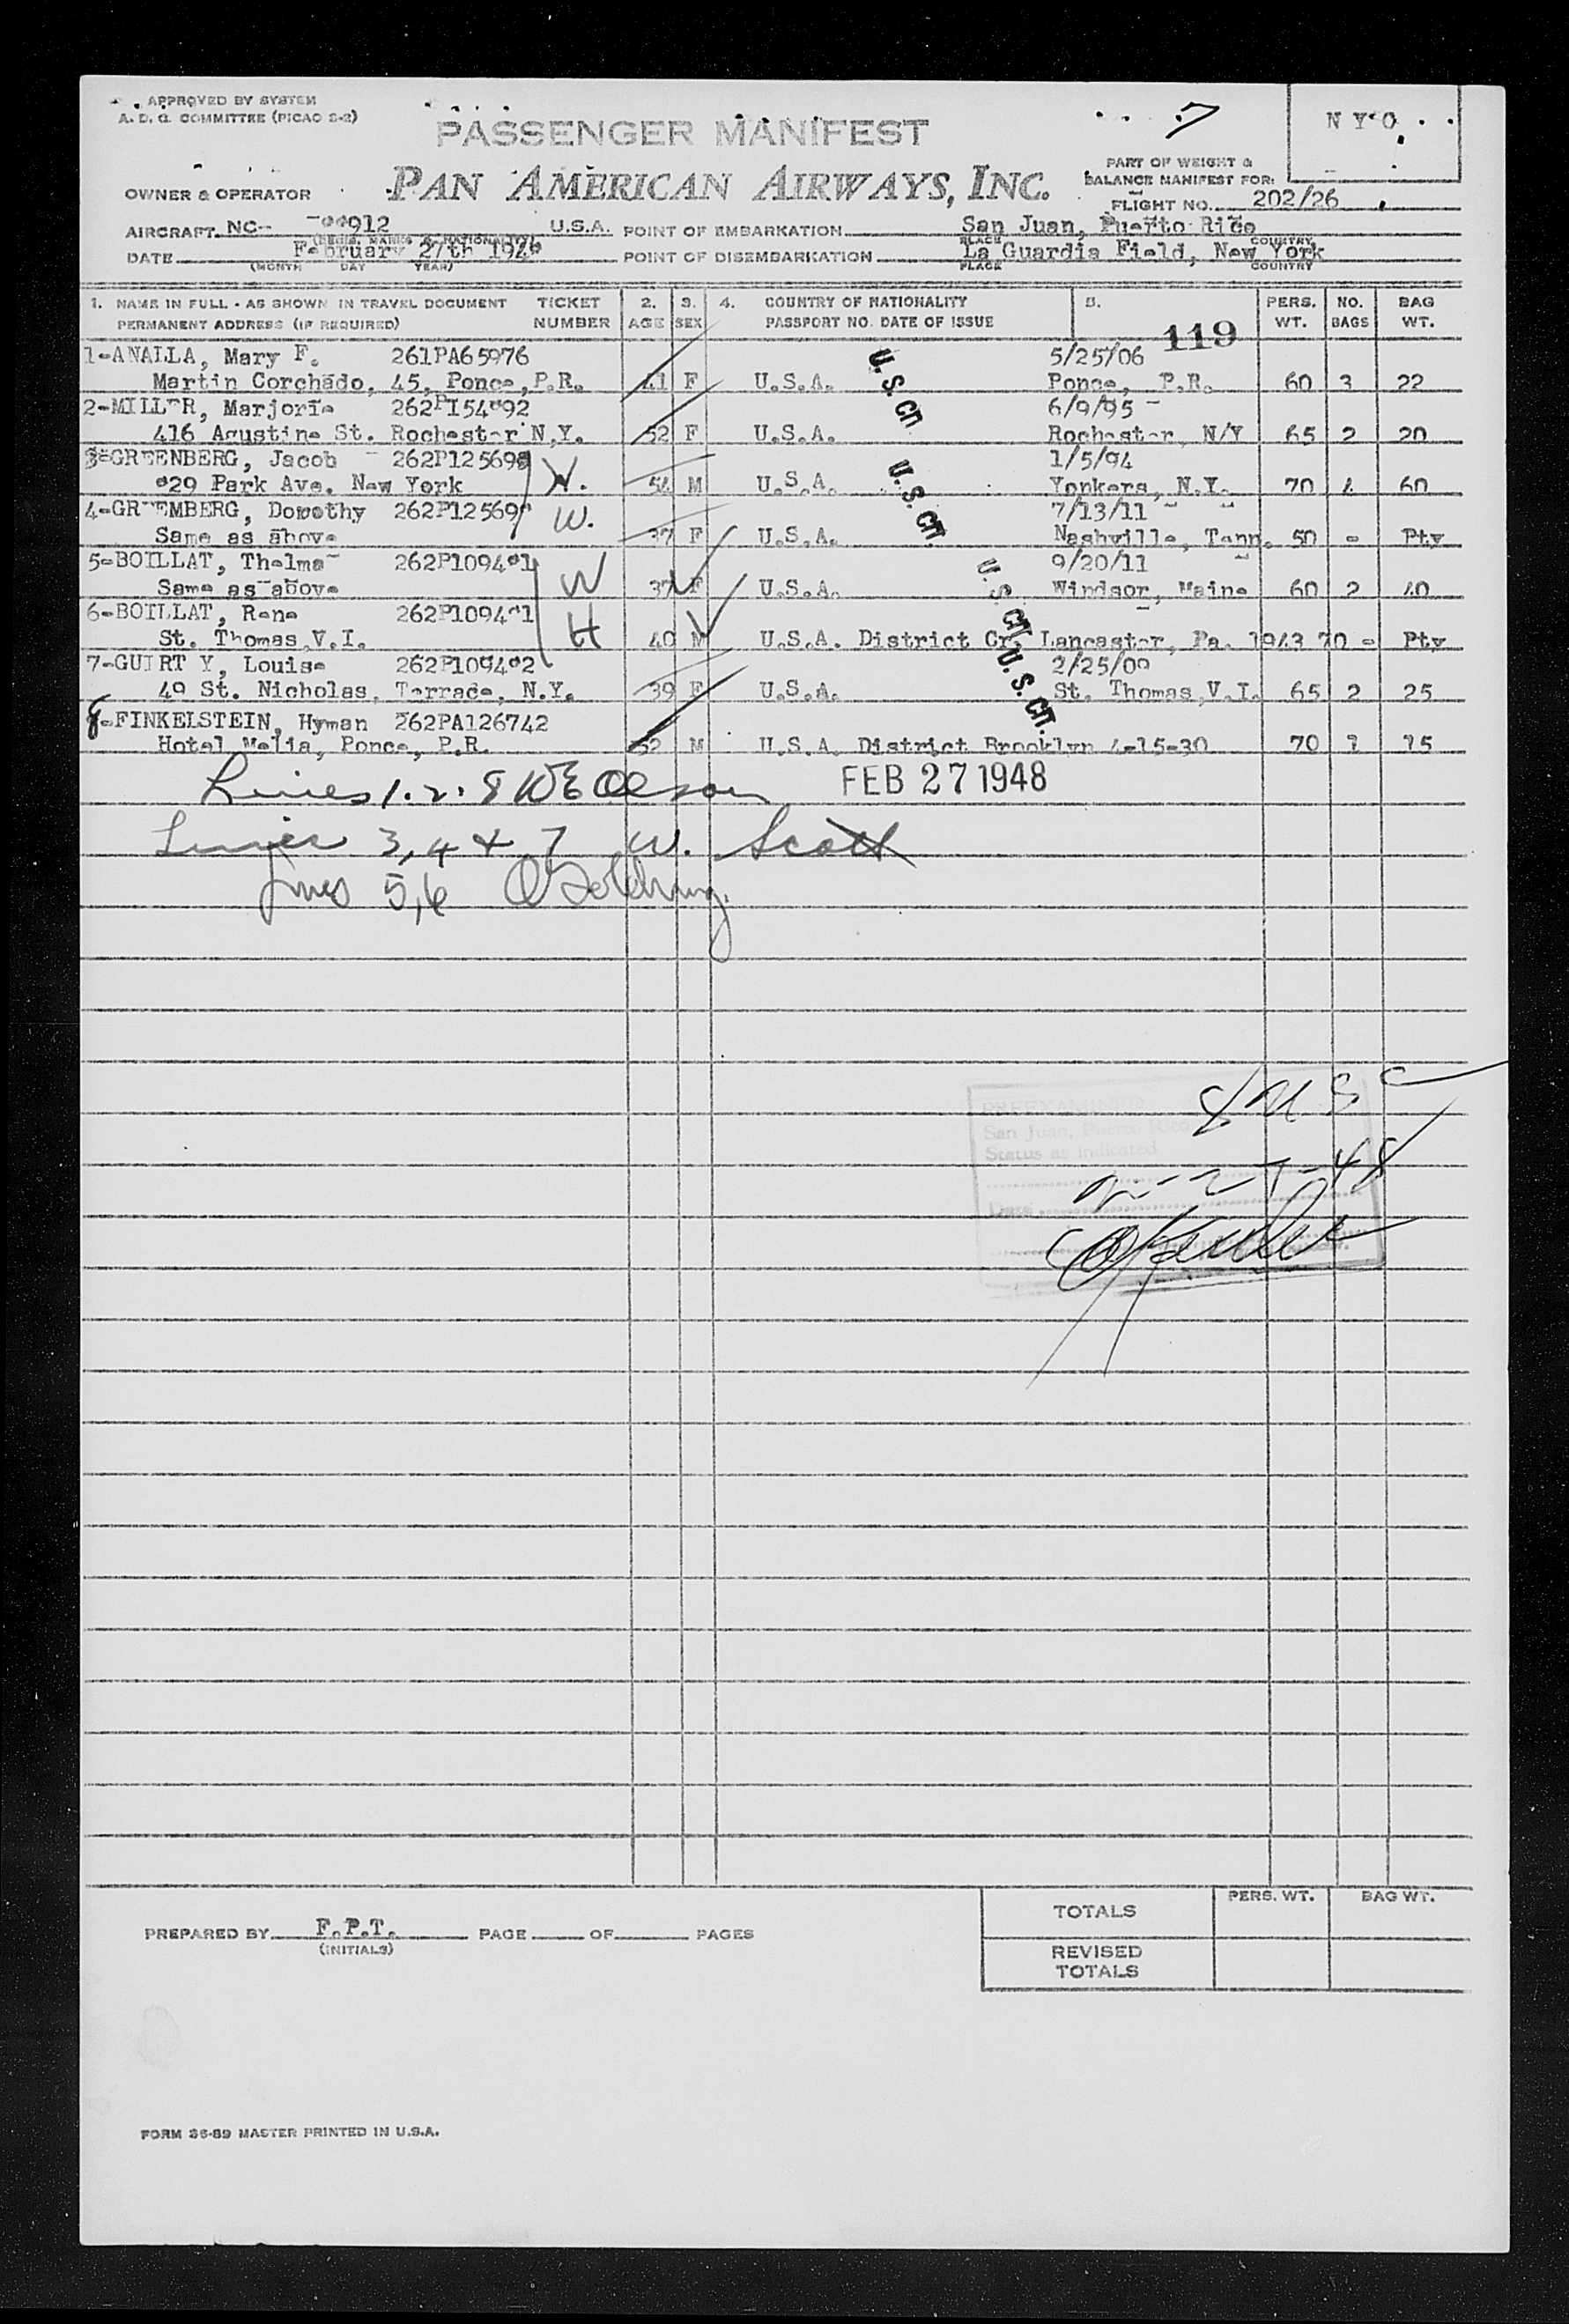 APPROVED BY SYSTEM
A. D. G. COMMITTEE (PICAO S-2)
PASSENGER MANIFEST
7
N Y O
OWNER & OPERATOR
PAN AMERICAN AIRWAYS, INC.
PART OF WEIGHT &
BALANCE MANIFEST FOR:
FLIGHT NO. 202/26
AIRCRAFT NC- 912 U.S.A. POINT OF EMBARKATION San Juan, Puerto Rico
DATE February 27th POINT OF DISEMBARKATION La Guardia Field, New York
(MONTH DAY YEAR) PLACE COUNTRY
1. NAME IN FULL - AS SHOWN IN TRAVEL DOCUMENT TICKET 2. 3. 4. COUNTRY OF NATIONALITY 5. PERS. NO. BAG
PERMANENT ADDRESS (IF REQUIRED) NUMBER AGE SEX PASSPORT NO. DATE OF ISSUE 119 WT. BAGS WT.
1-ANALLA, Mary F. 261PA65976 5/25/06
Martin Corchado, 45, Ponce, P.R. 41 F U.S.A. U.S.CT. Ponce, P.R. 60 3 22
2-MILLER, Marjorie 6/9/95
416 Agustine St. Rochester N.Y. 52 F U.S.A. Rochester, N/Y 65 2 20
3-GREENBERG, Jacob W. 1/5/94
929 Park Ave. New York 54 M U.S.A. U.S.CT. Yonkers, N.Y. 70 4 60
4-GREEMBERG, Dorothy W. 7/13/11
Same as above 37 F U.S.A. Nashville, Tenn. 50 - Pty
5-BOILLAT, Thelma W 9/20/11
Same as above 37 F U.S.A. U.S.CT. Windsor, Maine 60 2 40
6-BOILLAT, Rene H
St. Thomas, V.I. 40 M U.S.A. District Crt. Lancaster, Pa. 1943 70 - Pty
7-GUIRTY, Louise 2/25/09
49 St. Nicholas, Terrace, N.Y. 39 F U.S.A. U.S.CT. St. Thomas, V.I. 65 2 25
8-FINKELSTEIN, Hyman 262PA126742
Hotel Melia, Ponce, P.R. 52 M U.S.A. District Brooklyn 4-15-30 70 1 15
Lines 1. 2. 8 WE Oleson FEB 27 1948
Lines 3, 4 & 7 W. Scott
Lines 5, 6
8 USC
San Juan, Puerto Rico
Status as indicated
Date 2-27-48
PREPARED BY F.P.T. PAGE OF PAGES
(INITIALS)
PERS. WT. BAG WT.
TOTALS
REVISED
TOTALS
FORM 36-89 MASTER PRINTED IN U.S.A.